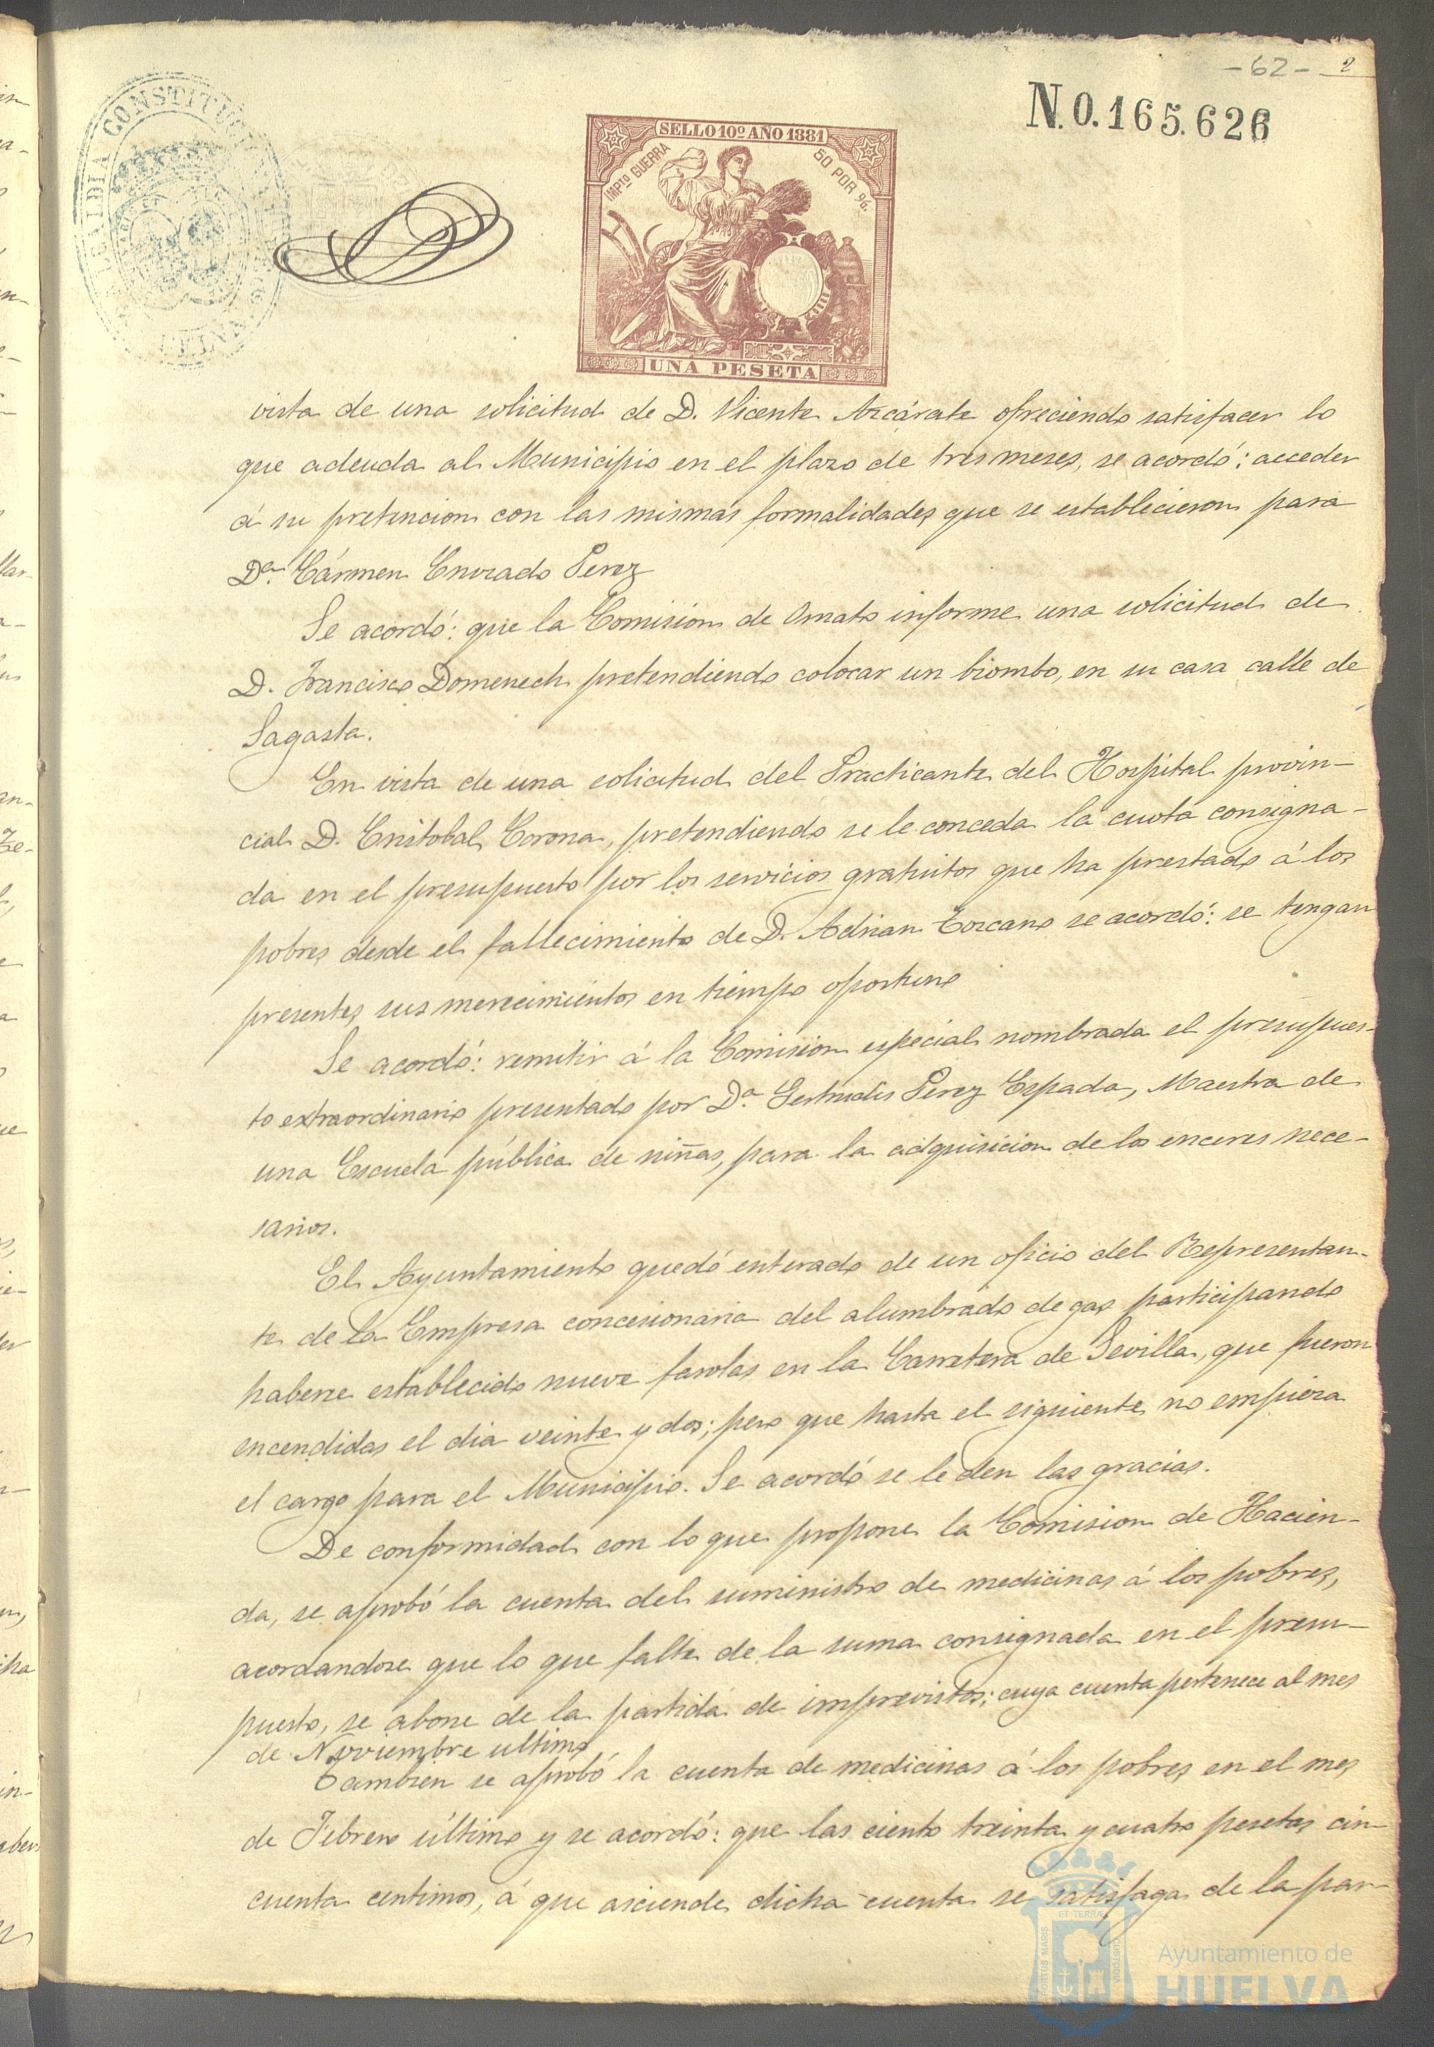 - 62 - 2
N. 0.165.626
ALCALDIA CONSTITUCIONAL
SELLO 10º AÑO 1881
IMPTO GUERRA
50 POR %
UNA PESETA
vista de una solicitud de D. Vicente Azcárate ofreciendo satisfacer lo
que adeuda al Municipio en el plazo de tres meses, se acordó: acceder
á su pretencion con las mismas formalidades que se establecieron para
Dª. Cármen Cruzado Perez
Se acordó: que la Comisión de Ornato informe una solicitud de
D. Francisco Domenech pretendiendo colocar un biombo, en su casa calle de
Sagasta.
En vista de una solicitud del Practicante del Hospital provin-
cial D. Cristobal Corona, pretendiendo se le conceda la cuota consigna-
da en el presupuesto por los servicios gratuitos que ha prestado á los
pobres desde el fallecimiento de D. Adrian Toscano se acordó: se tengan
presentes sus merecimientos en tiempo oportuno
Se acordó: remitir á la Comision especial nombrada el presupues-
to extraordinario presentado por Dª. Gertrudis Perez Espada, Maestra de
una Escuela pública de niñas, para la adquisicion de los enceres nece-
sarios.
El Ayuntamiento quedó enterado de un oficio del Representan-
te de la Empresa concesionaria del alumbrado de gas participando
haberse establecido nueve farolas en la Carretera de Sevilla, que fueron
encendidas el dia veinte y dos; pero que hasta el siguiente no empieza
el cargo para el Municipio. Se acordó se le den las gracias.
De conformidad con lo que propone la Comision de Hacien-
da, se aprobó la cuenta del suministro de medicinas á los pobres,
acordandose que lo que falte de la suma consignada en el presu-
puesto, se abone de la partida de imprevistos; cuya cuenta pertenece al mes
de Noviembre ultimo
Tambien se aprobó la cuenta de medicinas á los pobres en el mes
de Febrero último y se acordó: que las ciento treinta y cuatro pesetas cin-
cuenta centimos, á que asciende dicha cuenta se satisfaga de la par-
Ayuntamiento de
HUELVA